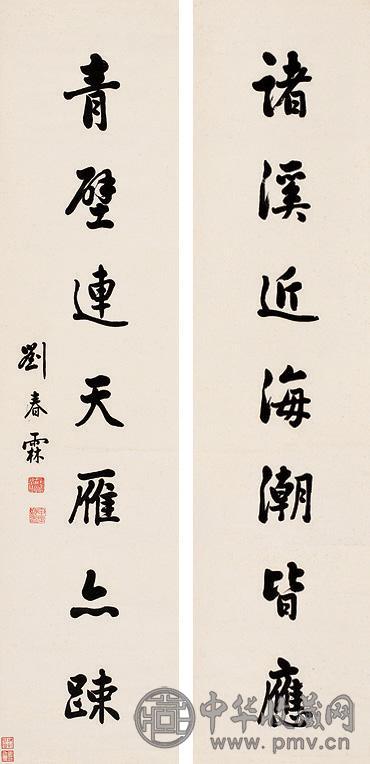 諸溪近海潮皆應
青壁連天雁亦踈
劉春霖
中华收藏网
www.pmv.cn